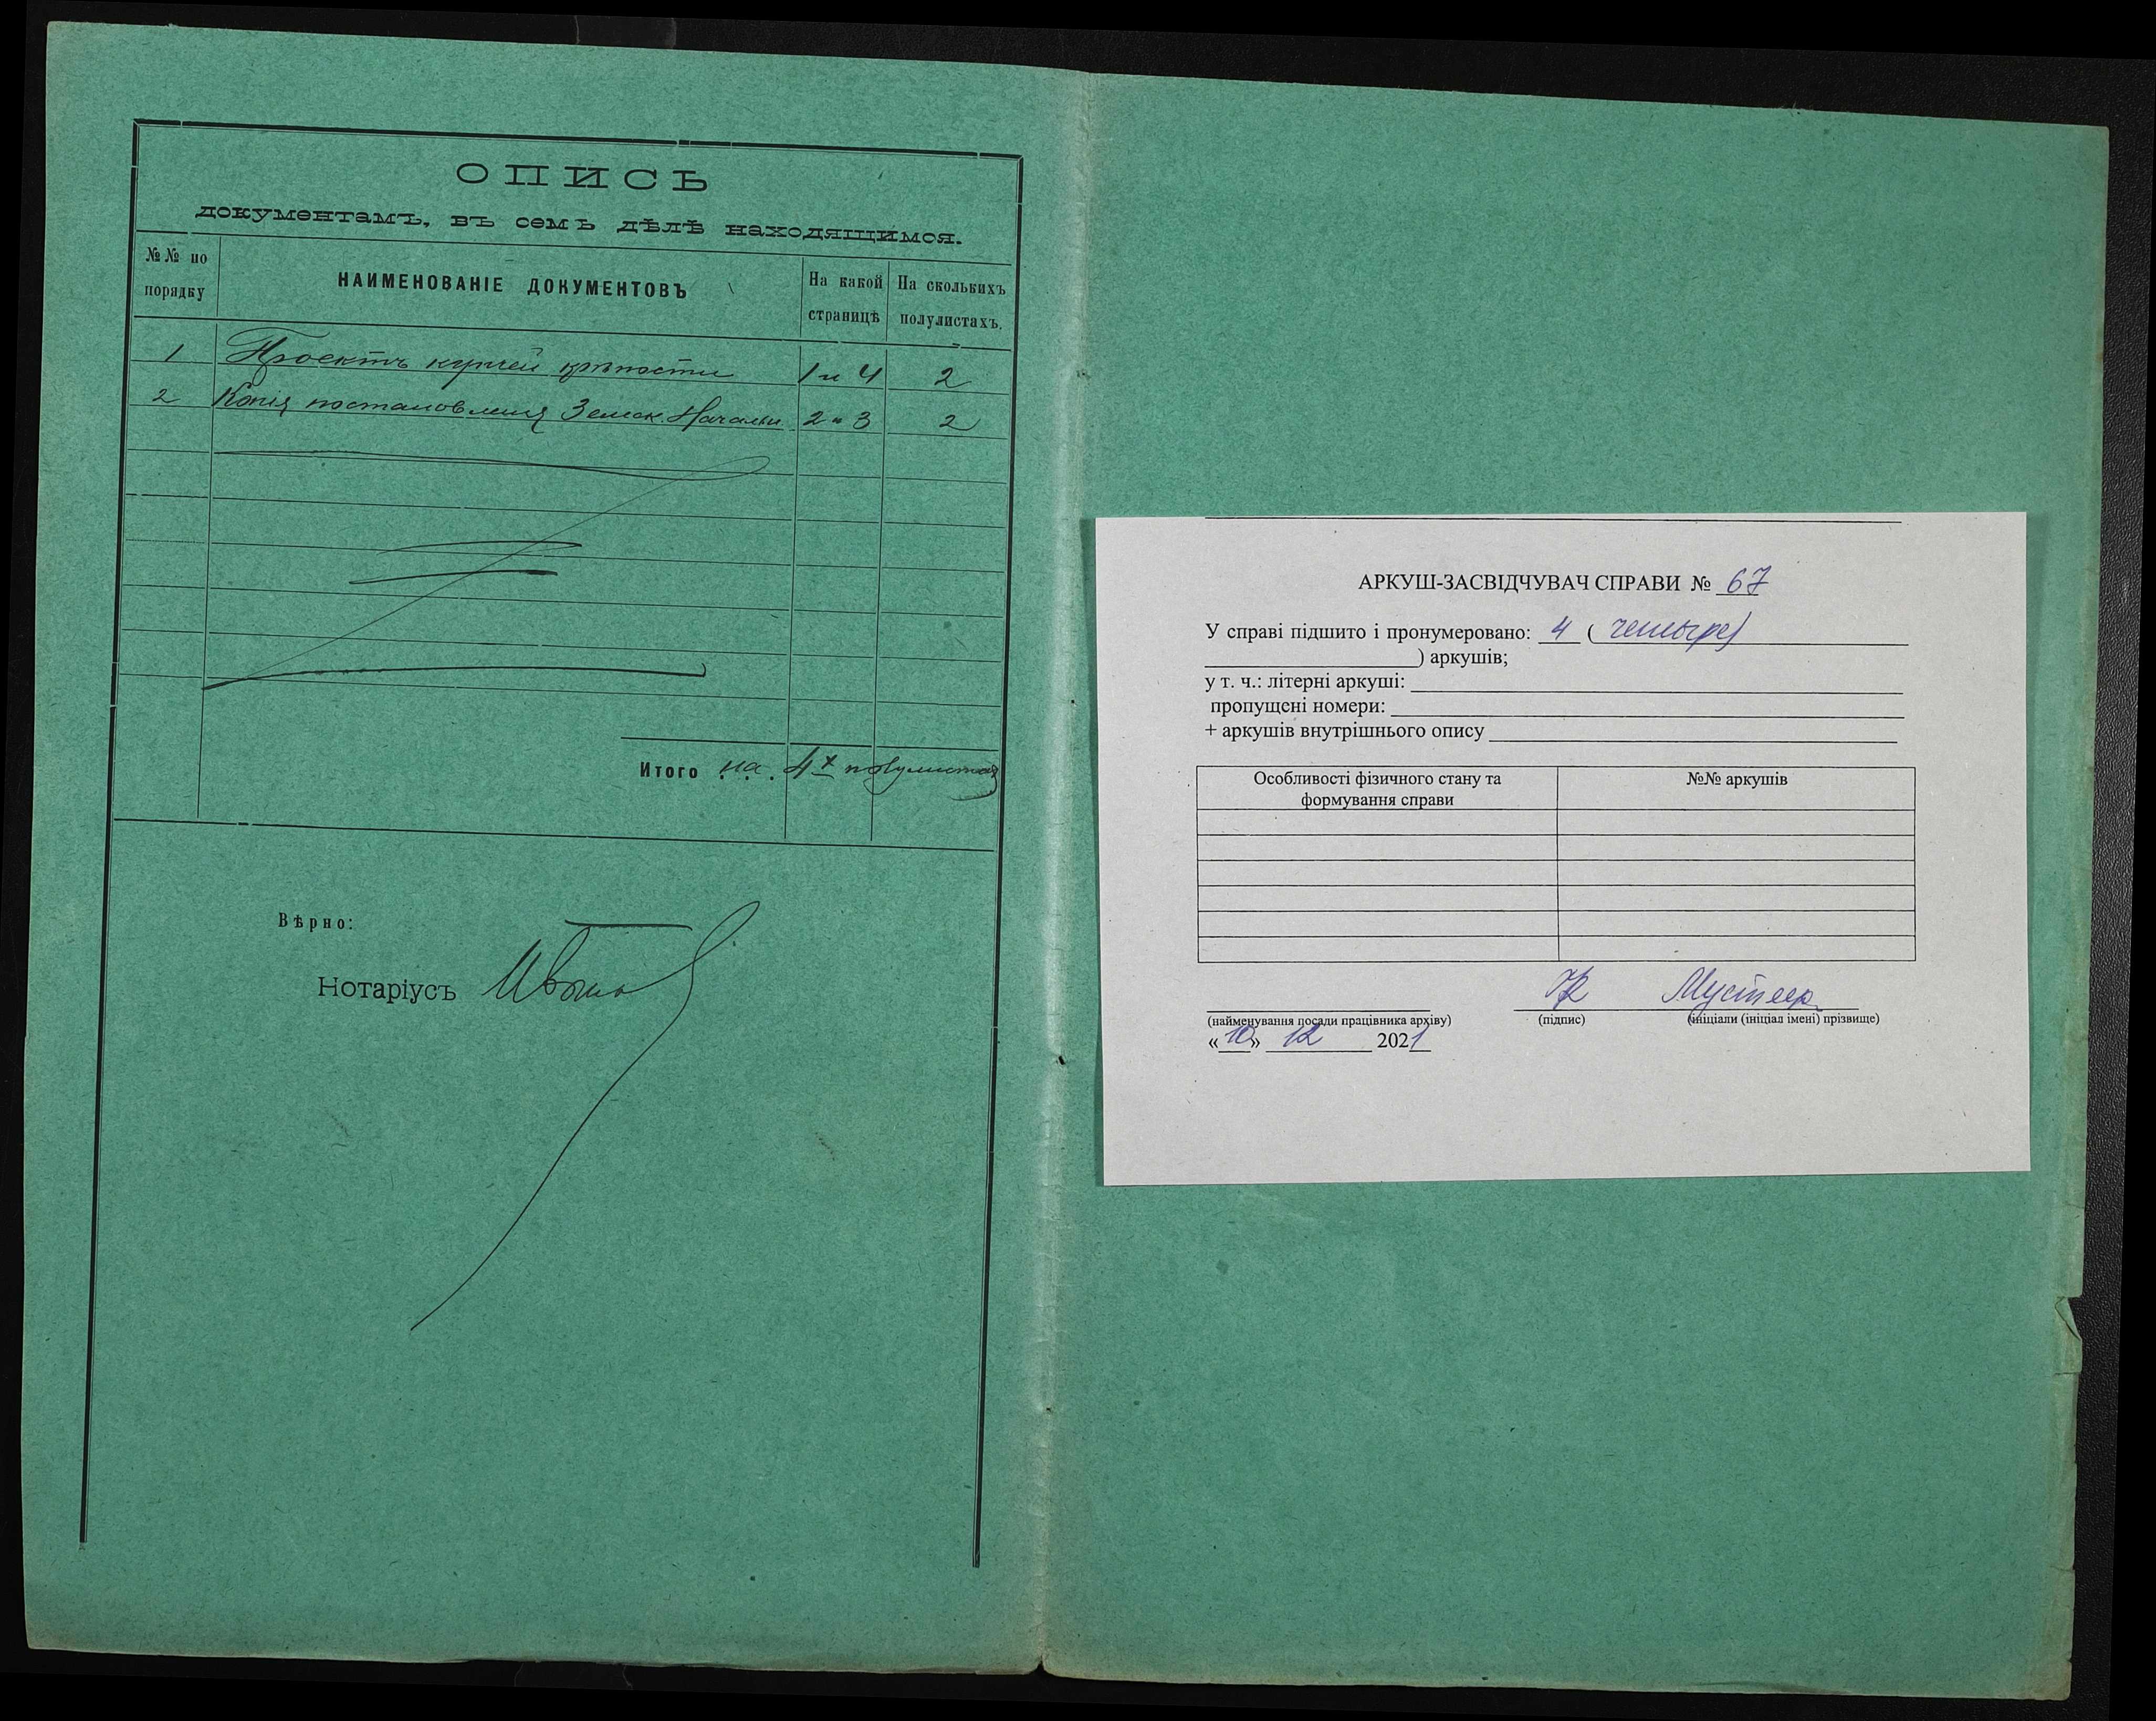 ОПИСЬ
документамъ, въ семъ дѣлѣ находящимся.
№№ по порядку
НАИМЕНОВАНІЕ ДОКУМЕНТОВЪ
На какой страницѣ
На сколькихъ полулистахъ.
1 Проектъ купчей крѣпости 1 и 4 2
2 Копія постановленія Земск. Начальн. 2 и 3 2
Итого на 4х полулистах
Вѣрно:
Нотаріусъ
АРКУШ-ЗАСВІДЧУВАЧ СПРАВИ № 67
У справі підшито і пронумеровано: 4 ( четыре)
) аркушів;
у т. ч.: літерні аркуші:
пропущені номери:
+ аркушів внутрішнього опису
Особливості фізичного стану та формування справи
№№ аркушів
Мустяца
(найменування посади працівника архіву) (підпис) (ініціали (ініціал імені) прізвище)
«10» 12 2021